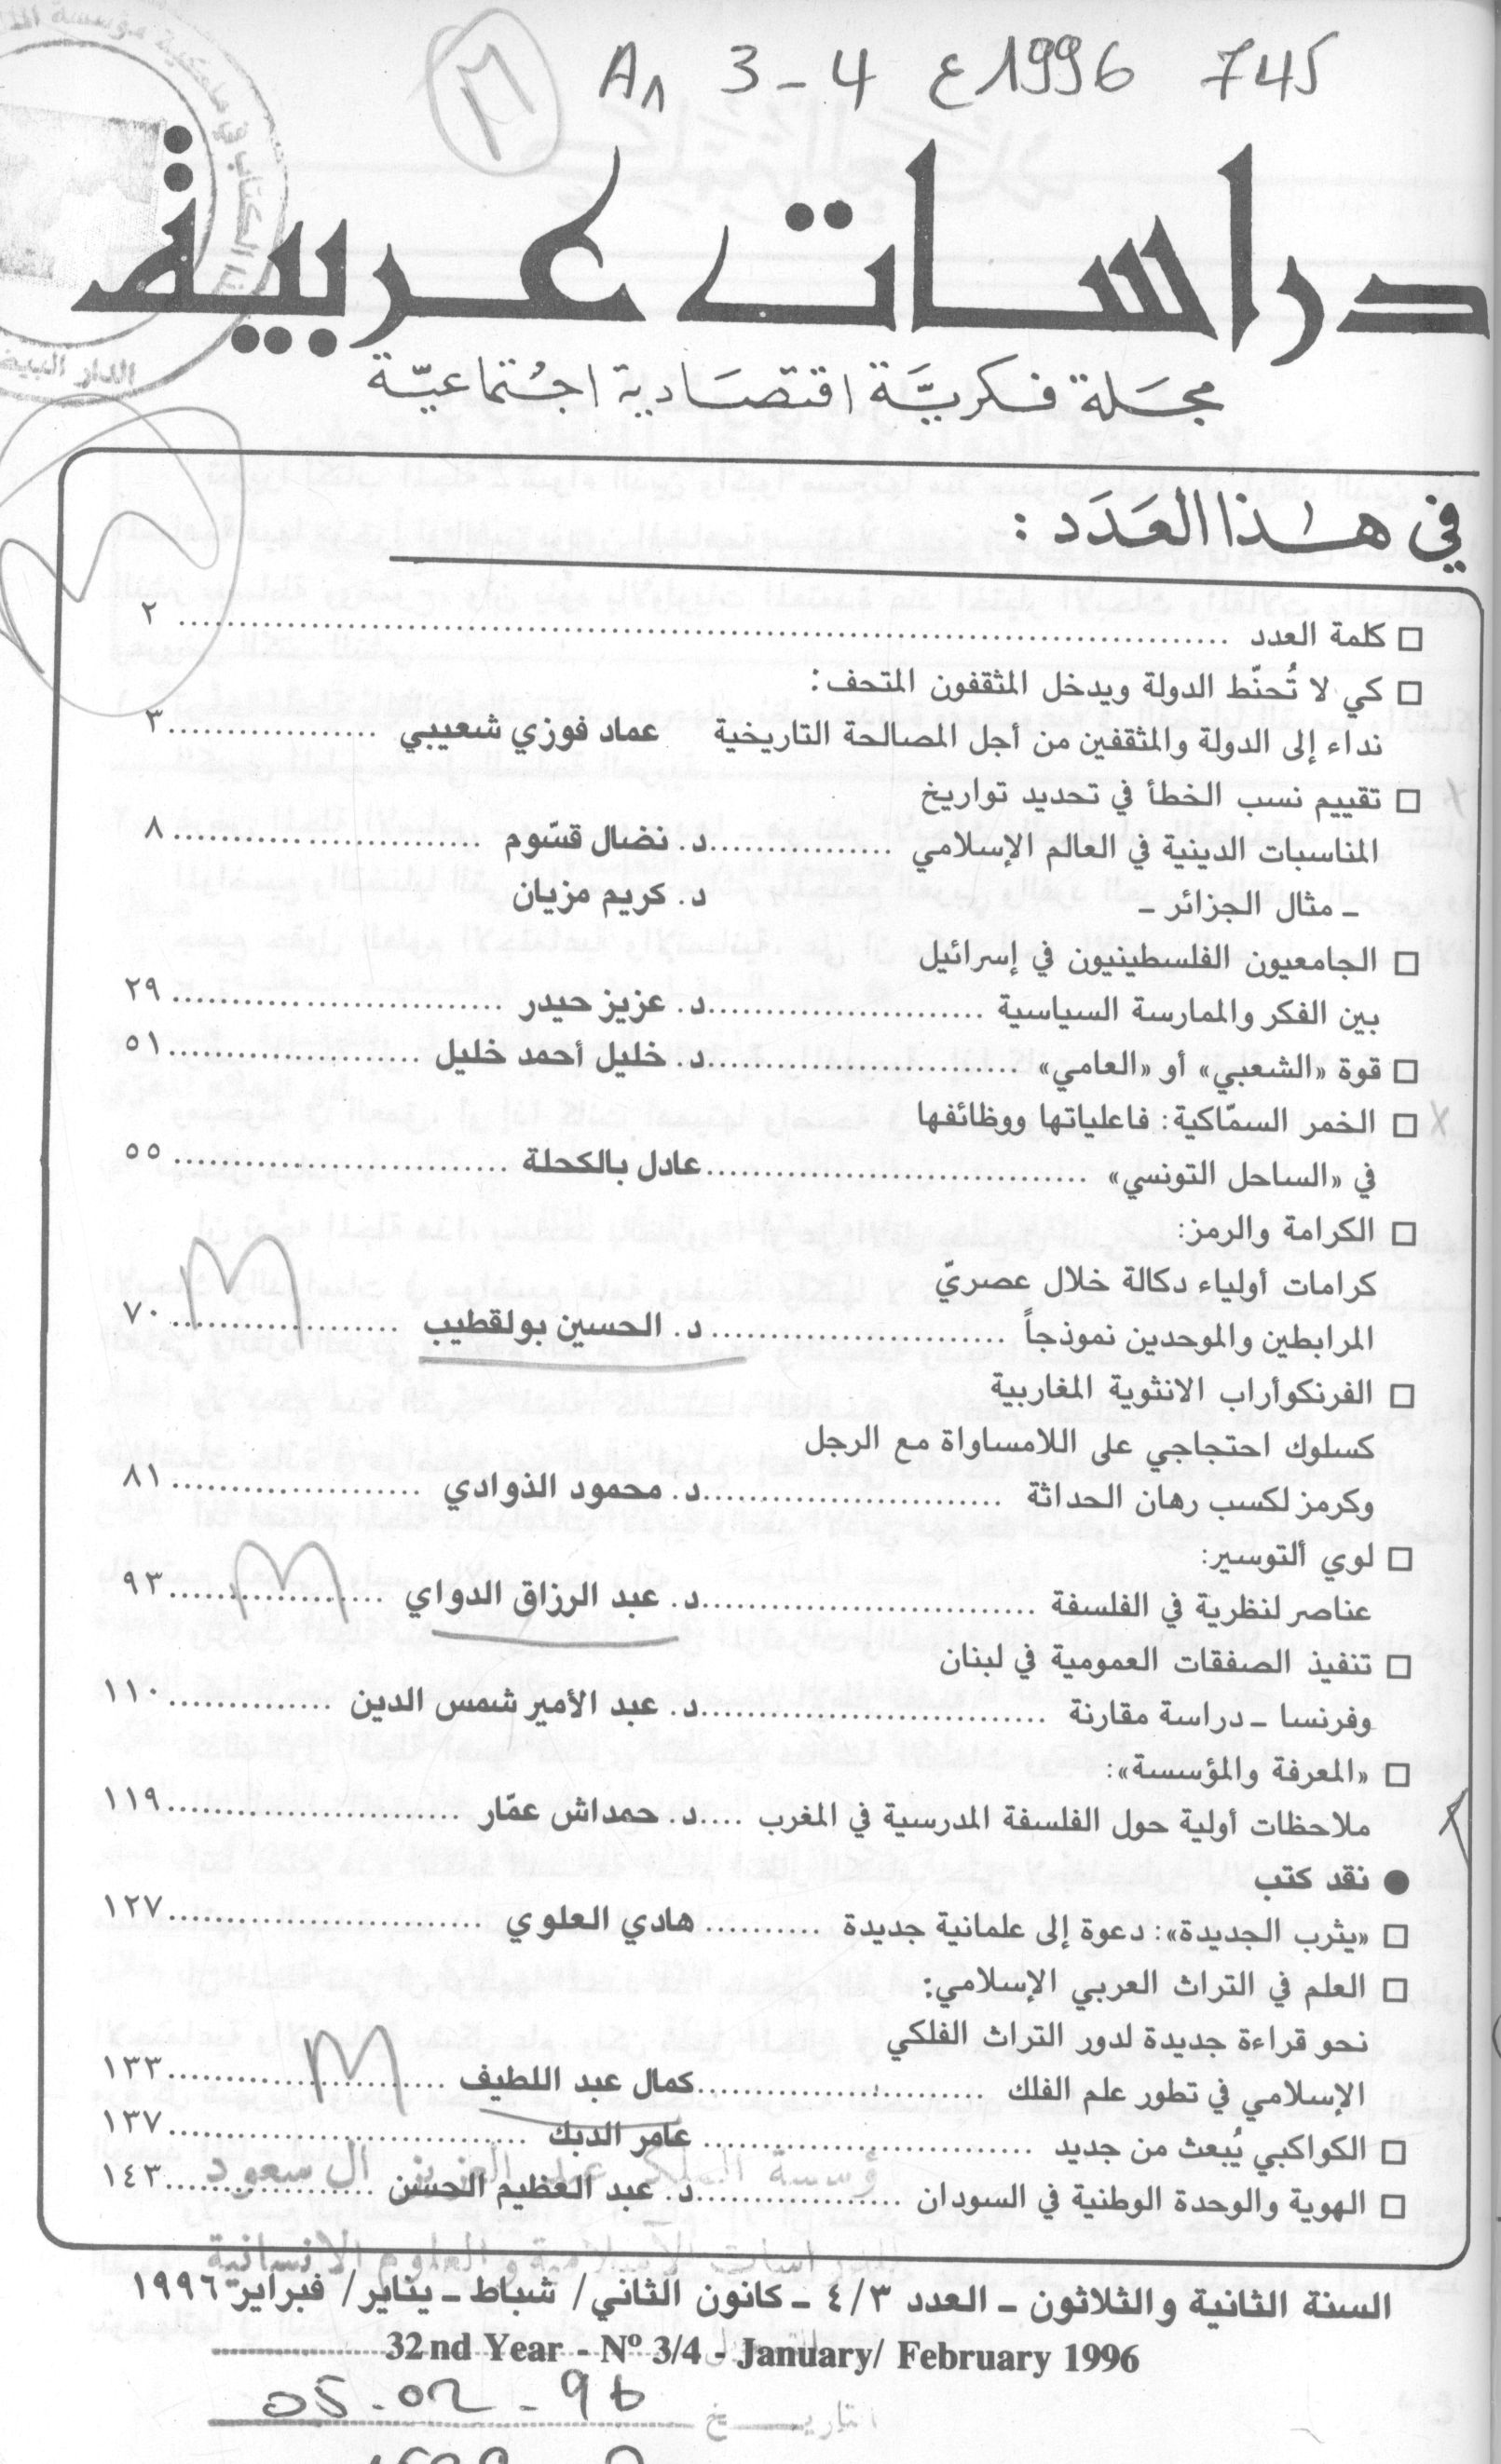 A1 3-4 ع 1996 745
دراسات عربية
مجَلة فكريَّة اقتصَادية اجْتماعيّة
في هٰذا العَدَد :
□ كلمة العدد .......... ٢
□ كي لا تُحنّط الدولة ويدخل المثقفون المتحف:
نداء إلى الدولة والمثقفين من أجل المصالحة التاريخية عماد فوزي شعيبي .......... ٣
□ تقييم نسب الخطأ في تحديد تواريخ
المناسبات الدينية في العالم الإسلامي .......... د. نضال قسّوم .......... ٨
ـ مثال الجزائر ـ د. كريم مزيان
□ الجامعيون الفلسطينيون في إسرائيل
بين الفكر والممارسة السياسية .......... د. عزيز حيدر .......... ٢٩
□ قوة «الشعبي» أو «العامي» .......... د. خليل أحمد خليل .......... ٥١
□ الخمر السمّاكية: فاعلياتها ووظائفها
في «الساحل التونسي» .......... عادل بالكحلة .......... ٥٥
□ الكرامة والرمز:
كرامات أولياء دكالة خلال عصريّ
المرابطين والموحدين نموذجاً .......... د. الحسين بولقطيب .......... ٧٠
□ الفرنكوأراب الانثوية المغاربية
كسلوك احتجاجي على اللامساواة مع الرجل
وكرمز لكسب رهان الحداثة .......... د. محمود الذوادي .......... ٨١
□ لوي ألتوسير:
عناصر لنظرية في الفلسفة .......... د. عبد الرزاق الدواي .......... ٩٣
□ تنفيذ الصفقات العمومية في لبنان
وفرنسا ـ دراسة مقارنة .......... د. عبد الأمير شمس الدين .......... ١١٠
□ «المعرفة والمؤسسة»:
ملاحظات أولية حول الفلسفة المدرسية في المغرب .... د. حمداش عمّار .......... ١١٩
● نقد كتب
□ «يثرب الجديدة»: دعوة إلى علمانية جديدة .......... هادي العلوي .......... ١٢٧
□ العلم في التراث العربي الإسلامي:
نحو قراءة جديدة لدور التراث الفلكي
الإسلامي في تطور علم الفلك .......... كمال عبد اللطيف .......... ١٣٣
□ الكواكبي يُبعث من جديد .......... عامر الدبك .......... ١٣٧
□ الهوية والوحدة الوطنية في السودان .......... د. عبد العظيم الحسن .......... ١٤٣
السنة الثانية والثلاثون ـ العدد ٤/٣ ـ كانون الثاني/ شباط ـ يناير/ فبراير ١٩٩٦
32nd Year - Nº 3/4 - January/ February 1996
التاريخ 05-02-96